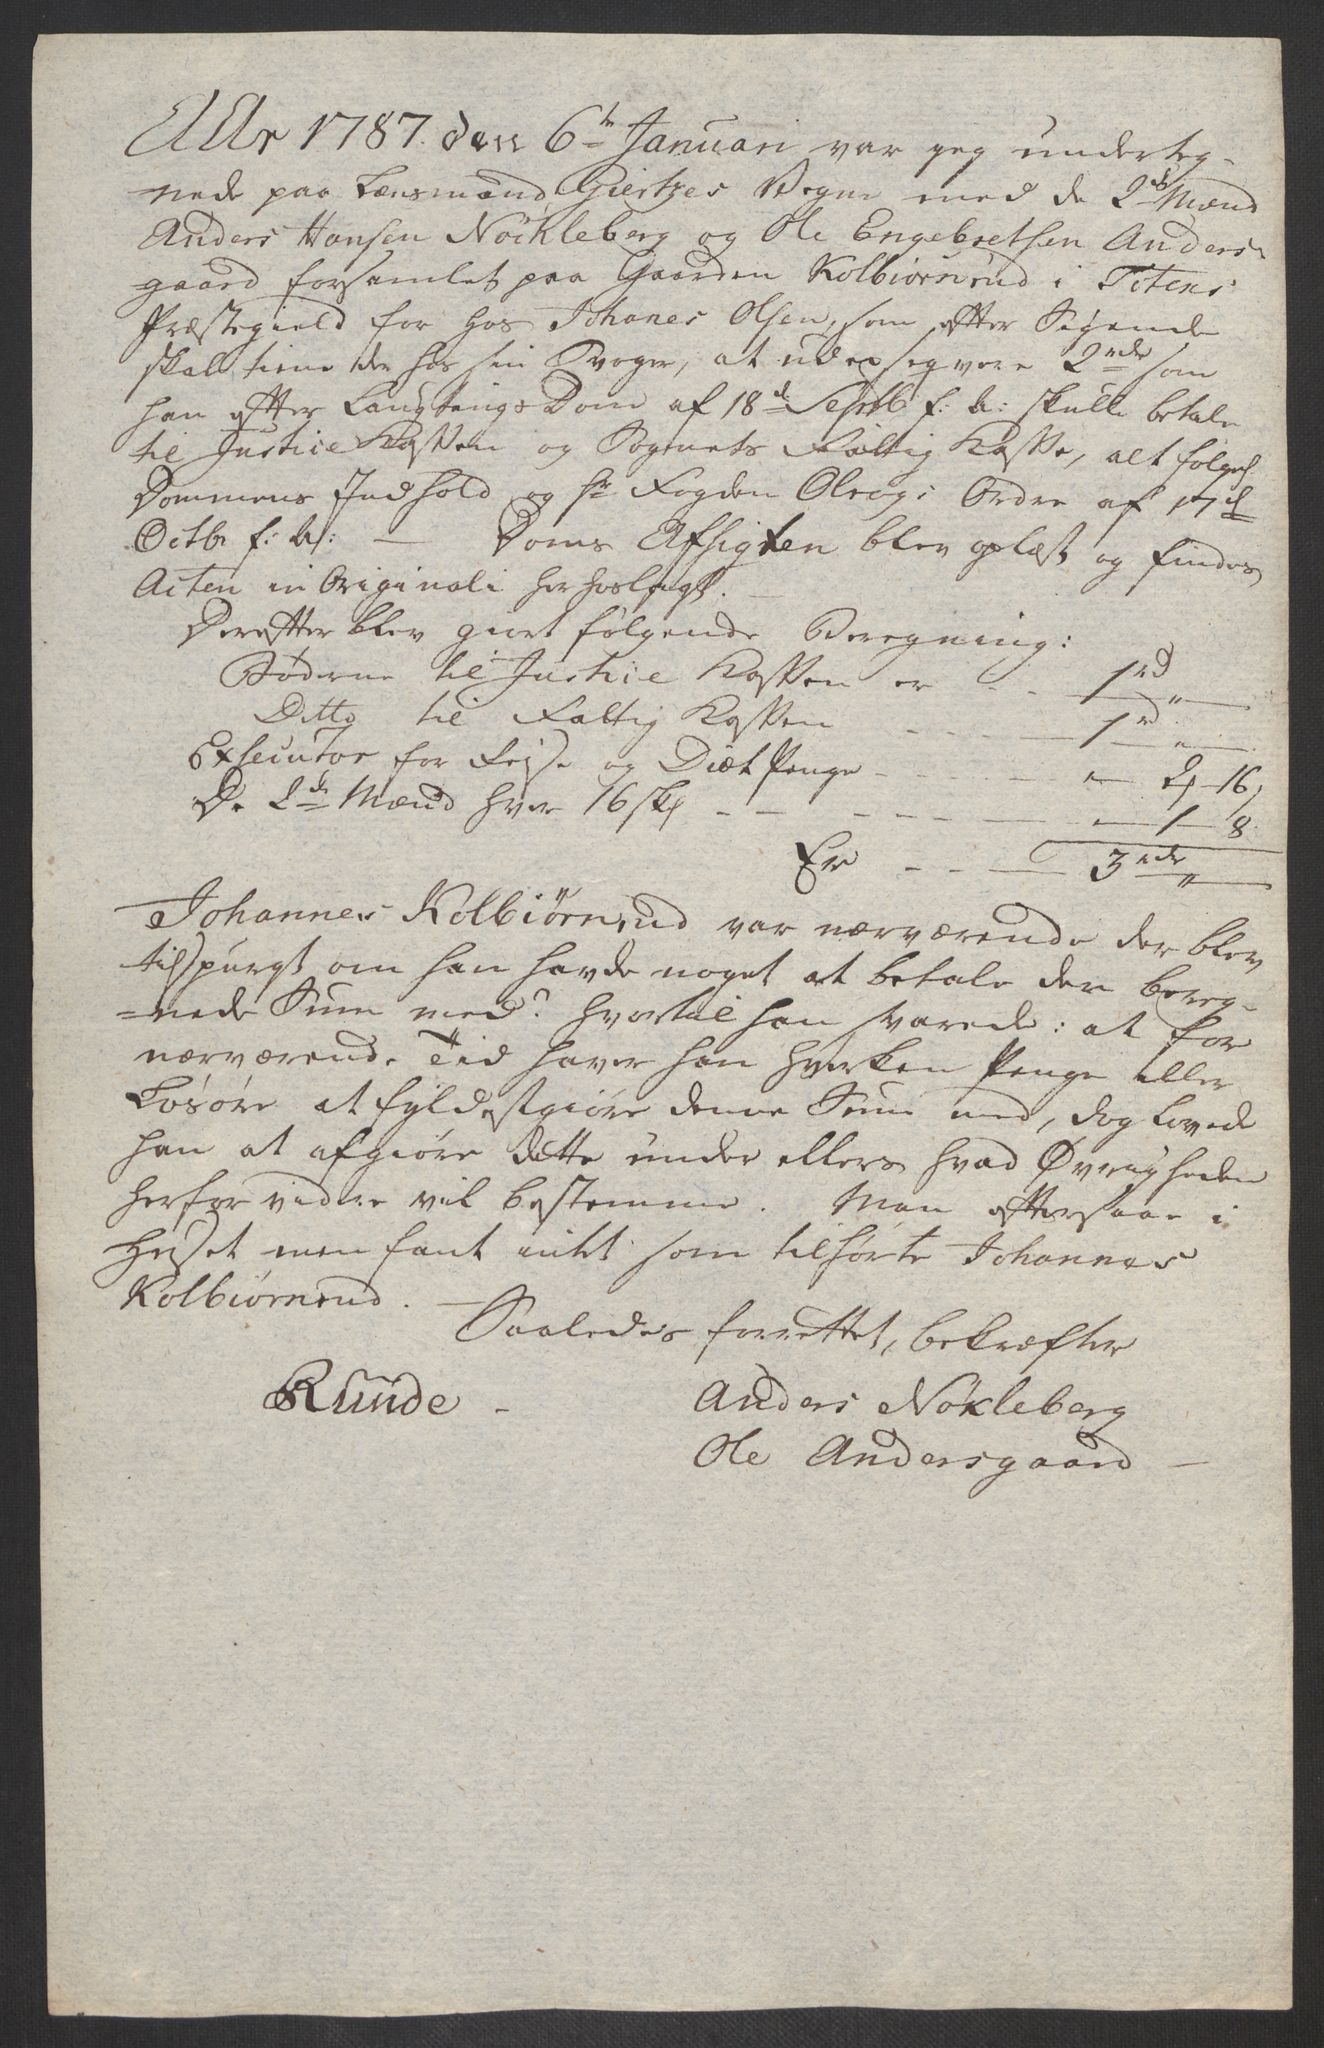 AAr 1787. den 6te Januari var jeg underteg-
nede paa Lænsmand Giertzes Vegne med de 2de Mænd
Anders Hansen Nöckleberg og Ole Engebretsen Anders-
gaard forsamlet paa Gaarden Kolbiörnrud i Totens
Præstegield for hos Johanes Olsen, som efter Sigende
skal tiene der hos sin Svoger, at udexseqvere 2rde som
han efter Laugtings Dom af 18d Septb f: A: skulle betale
til Justice Kassen og Sognets Fattig Kasse, alt følgel
Dommens Indhold og Hr Fogden Olrogs Ordre af 17d
Octb f: A: — Doms Afsigten blev oplæst og findes
Acten in Originali herhoslagt. —
Derefter blev giort følgende Beregning:
Bøderne til Justice Kassen er - - 1rd „ —
Ditto til Fattig Kassen - - - 1rd „ —
Exsecutor for Reise og Diæt Penge - - - „ — 2 - 16
De 2de Mænd hver 16 sk - - - - - - „ — 1 - 8
Er - - - 3rde „ —
Johannes Kolbiörnrud var nærværende der blev
tilspurgt om han havde noget at betale den bereg-
=nede Sum med? hvortil han svarede: at for
nærværende Tid haver han hverken Penge eller
Løsøre at fyldestgiøre denne Sum med, dog lovede
han at afgiøre dette under ellers hvad Øvrigheden
herfor videre vil bestemme. Man eftersaae i
Huset men fant intet som tilhørte Johannes
Kolbiørnrud. —
Saaledes forrettet, bekræfter
Runde - Anders Nökleberg
Ole Andersgaard —